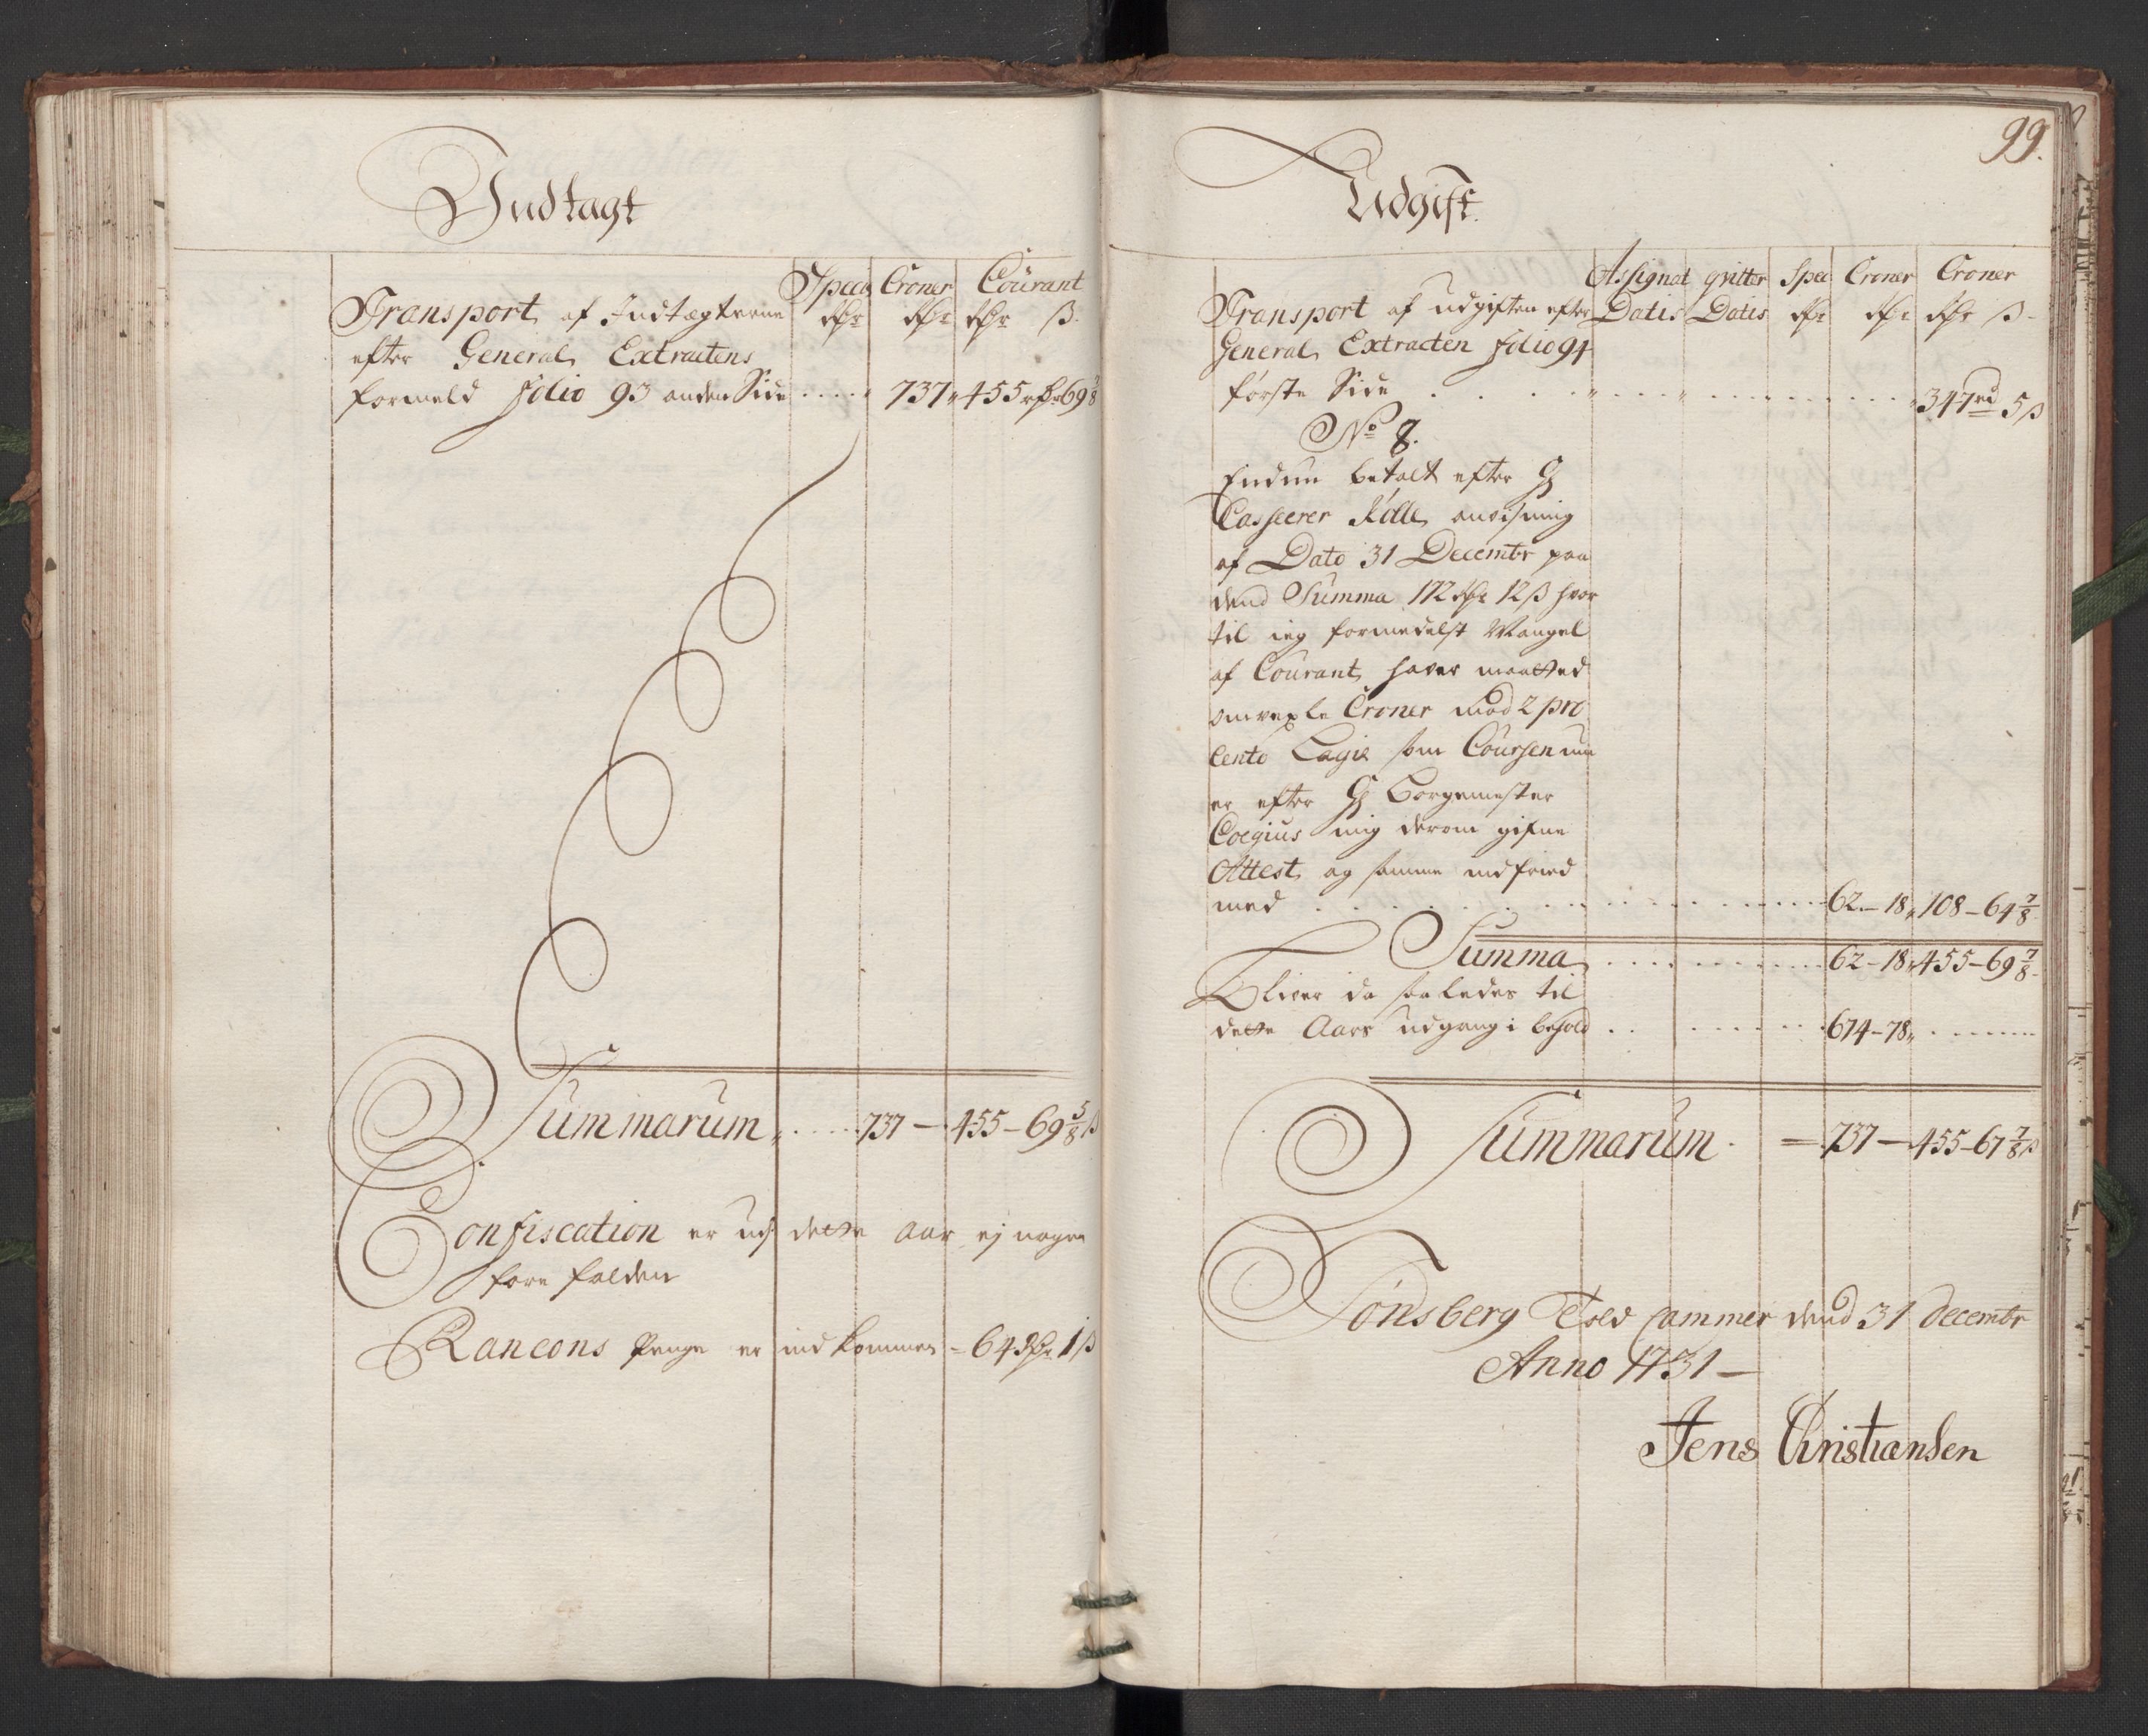 Indtagt
Specie Croner Courant
rdr rdr rdr ß.
Transport af Indtægterne
efter General Extractens
formeld folio 93 anden Side ..... 737 „ 455 rdr 69 7/8
Summarum ..... 737 — 455 – 69 5/8 ß
Confiscation er udj dette Aar ej nogen
fore falden
Rancons Penge er ind kommen = 64 rdr 1 ß
99.
Udgift.
Assignat qvitter Spec Croner Croner
Datis Datis rdr rdr rdr ß
Transport af udgiften efter
General Extracten folio 94
første Side . . . . 347 rd 5 ß
No 8.
Endnu betalt efter Hr
Casserer Kølle anvisning
af Dato 31 Decembr paa
dend Summa 172 rdr 12 ß hvor
til ieg formedelst Mangel
af Courant haver maatted
omvexle Croner mod 2 pro
Cento Lagie som Coursen nu
er efter Hr Borgemester
Coegius mig derom gifne
Attest og samme indfried
med . . . . 62 – 18 „ 108 – 64 7/8
Summa ..... 62 – 18 „ 455 – 69 7/8
Bliver da saaledes til
dette Aars udgang i behold . . . 674 – 78 „
Summarum = 737 — 455 – 67 7/8 ß
Tønsberg Told Cammer dend 31 Decembr
Anno 1731 —
Jens Christiansen